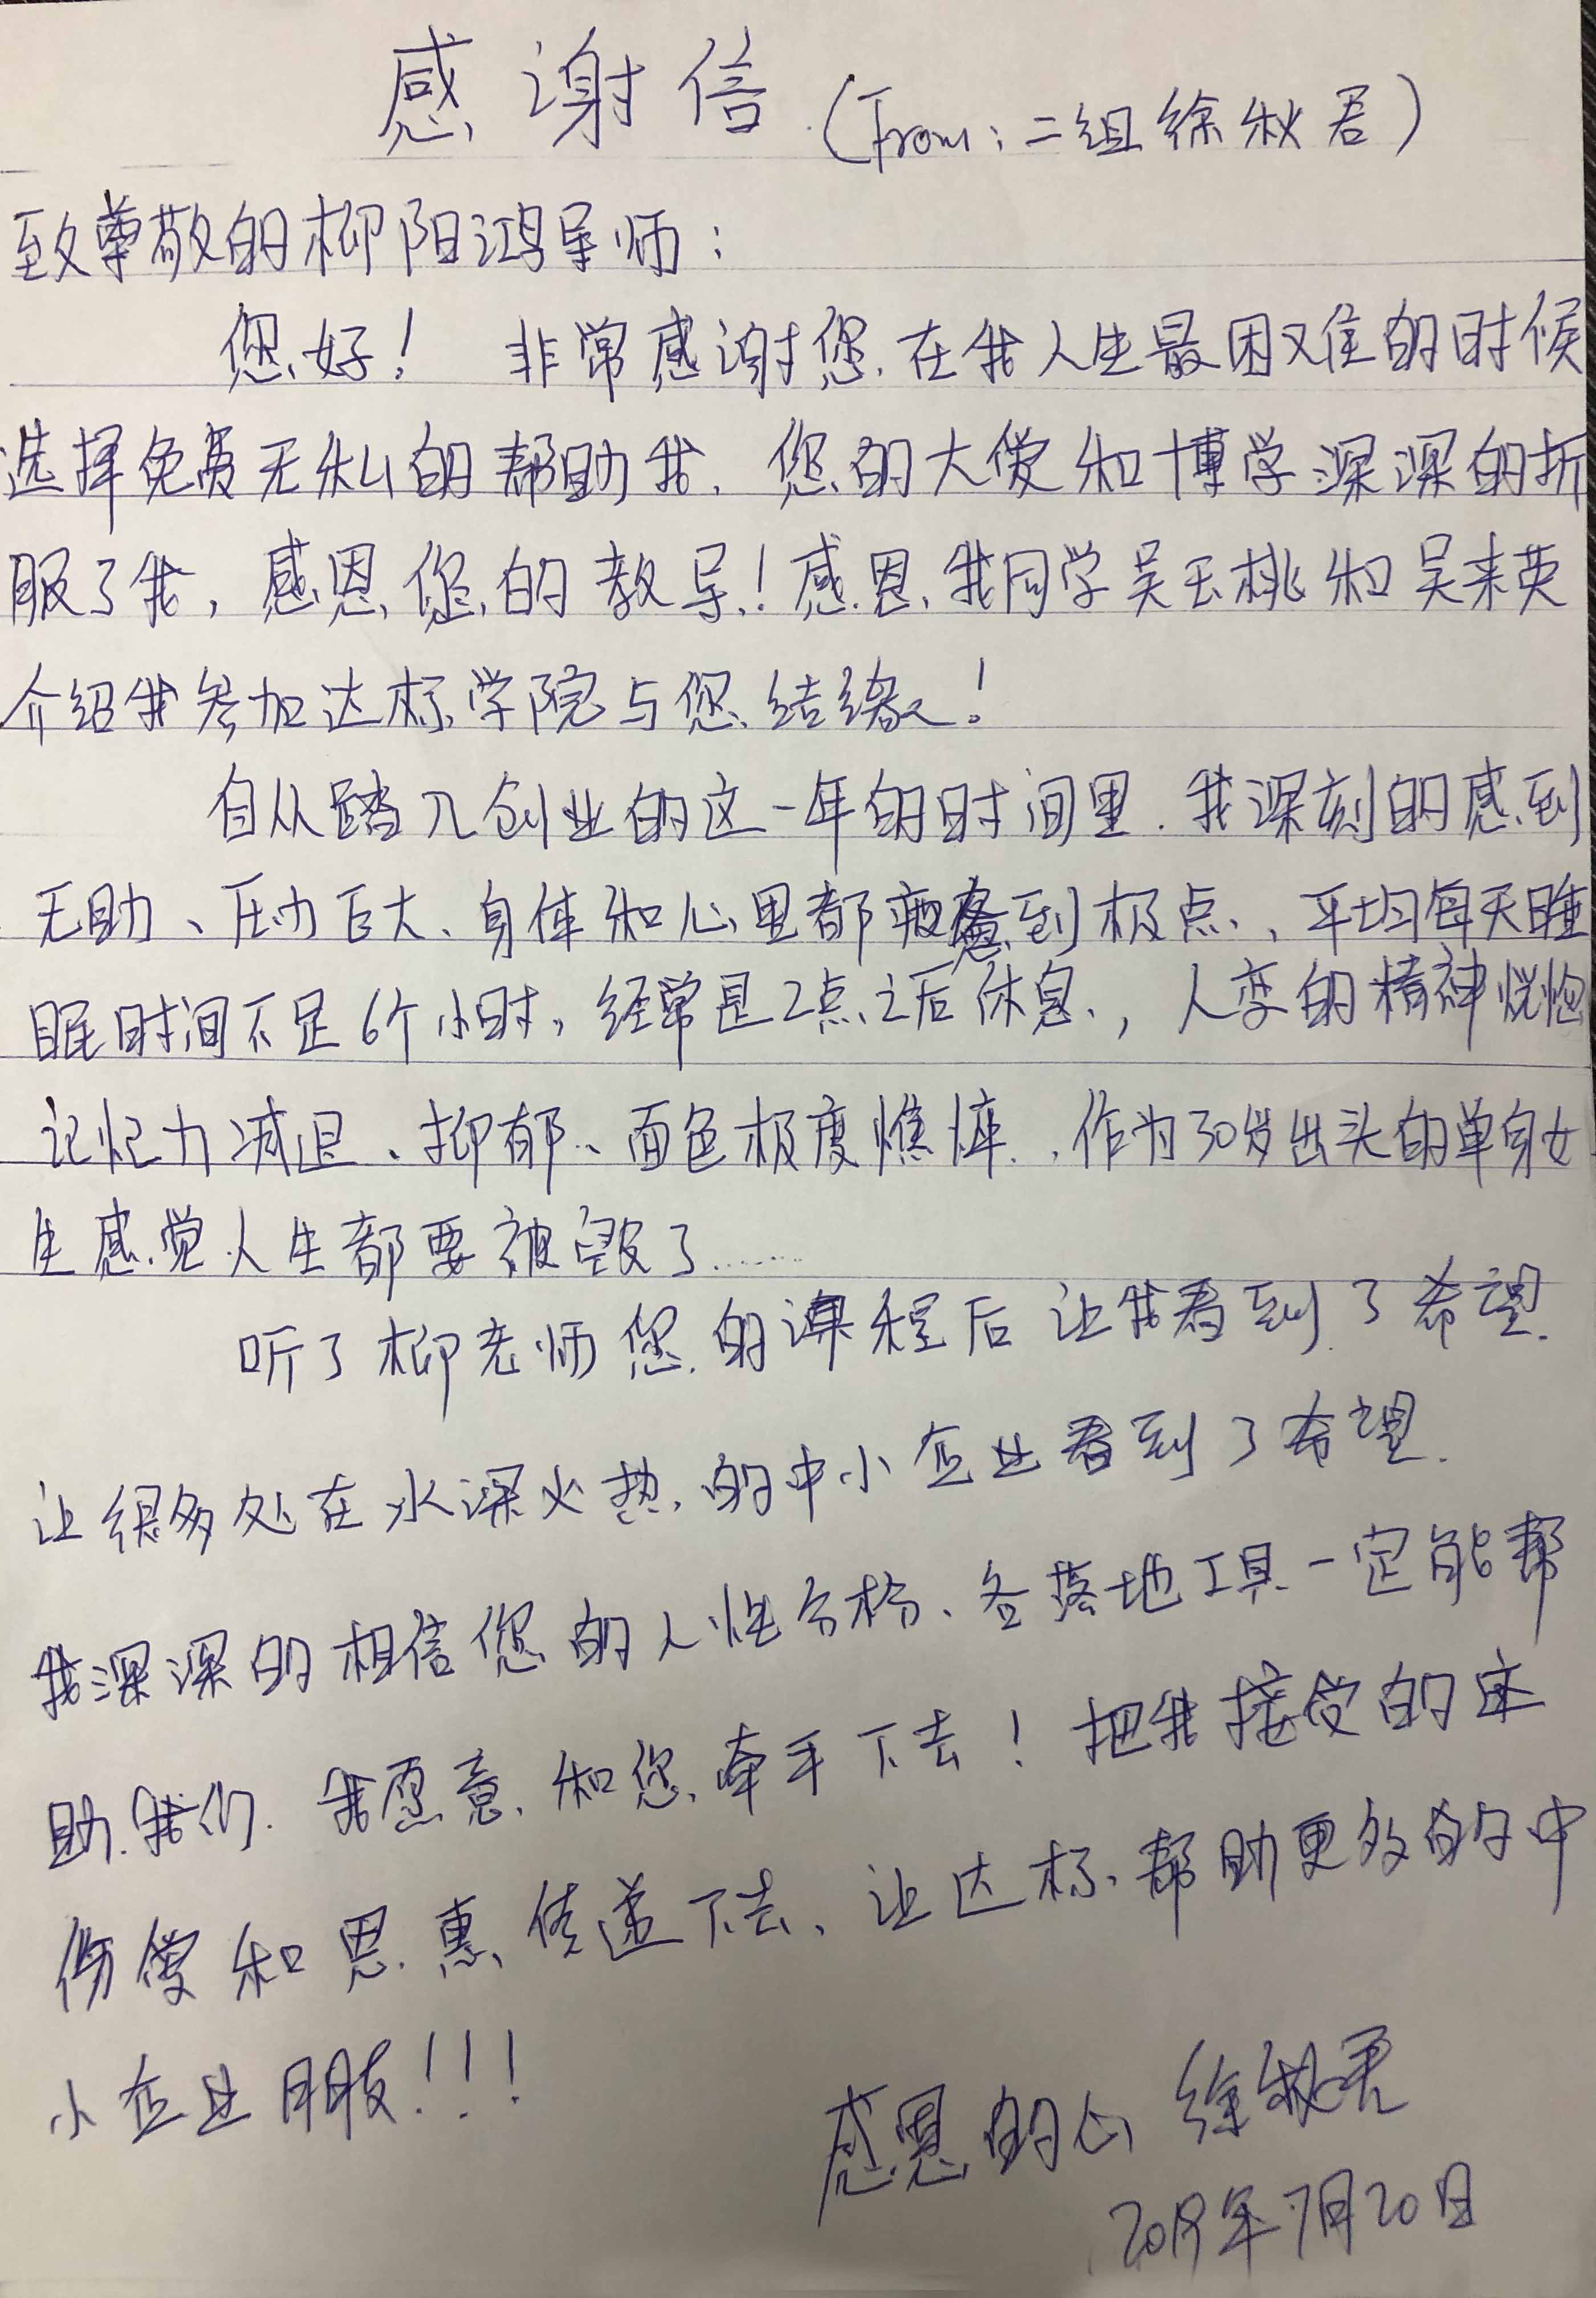 感谢信(From:二组徐秋君)
至尊敬的柳阳鸿导师:
您好! 非常感谢您.在我人生最困难的时候
选择免费无私的帮助我.您的大爱和博学深深的折
服了我,感恩您的教导!感恩我同学吴玉桃和吴来英
介绍我参加达标学院与您结缘!
自从踏入创业的这一年的时间里.我深刻的感到
无助、压力巨大、身体和心里都疲惫到极点、平均每天睡
眠时间不足6个小时,经常是2点之后休息,人变的精神恍惚
记忆力减退、抑郁、面色极度憔悴.,作为30岁出头的单身女
生感觉人生都要被毁了......
听了柳老师您的课程后让我看到了希望.
让很多处在水深火热的中小企业看到了希望.
我深深的相信您的人性分析、各落地工具一定能帮
助我们.我愿意和您牵手下去!把我接受的
爱和恩惠传递下去、让达标帮助更多的中
小企业朋友!!!
感恩的心 徐秋君
2019年7月20日